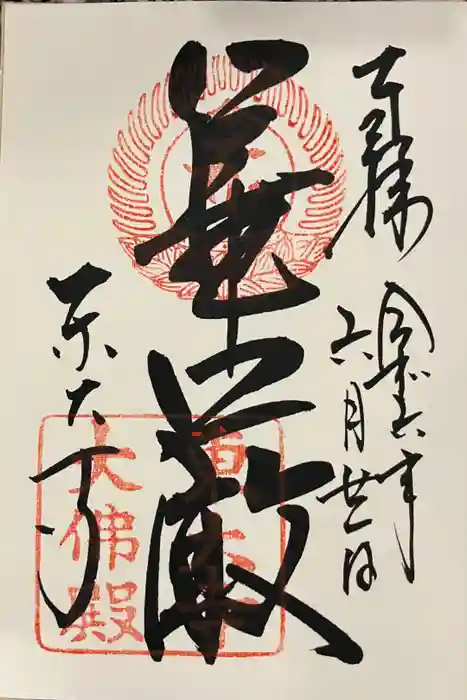 奉拝
令和六年
六月廿一日
華厳
東大寺
東大寺
大佛殿